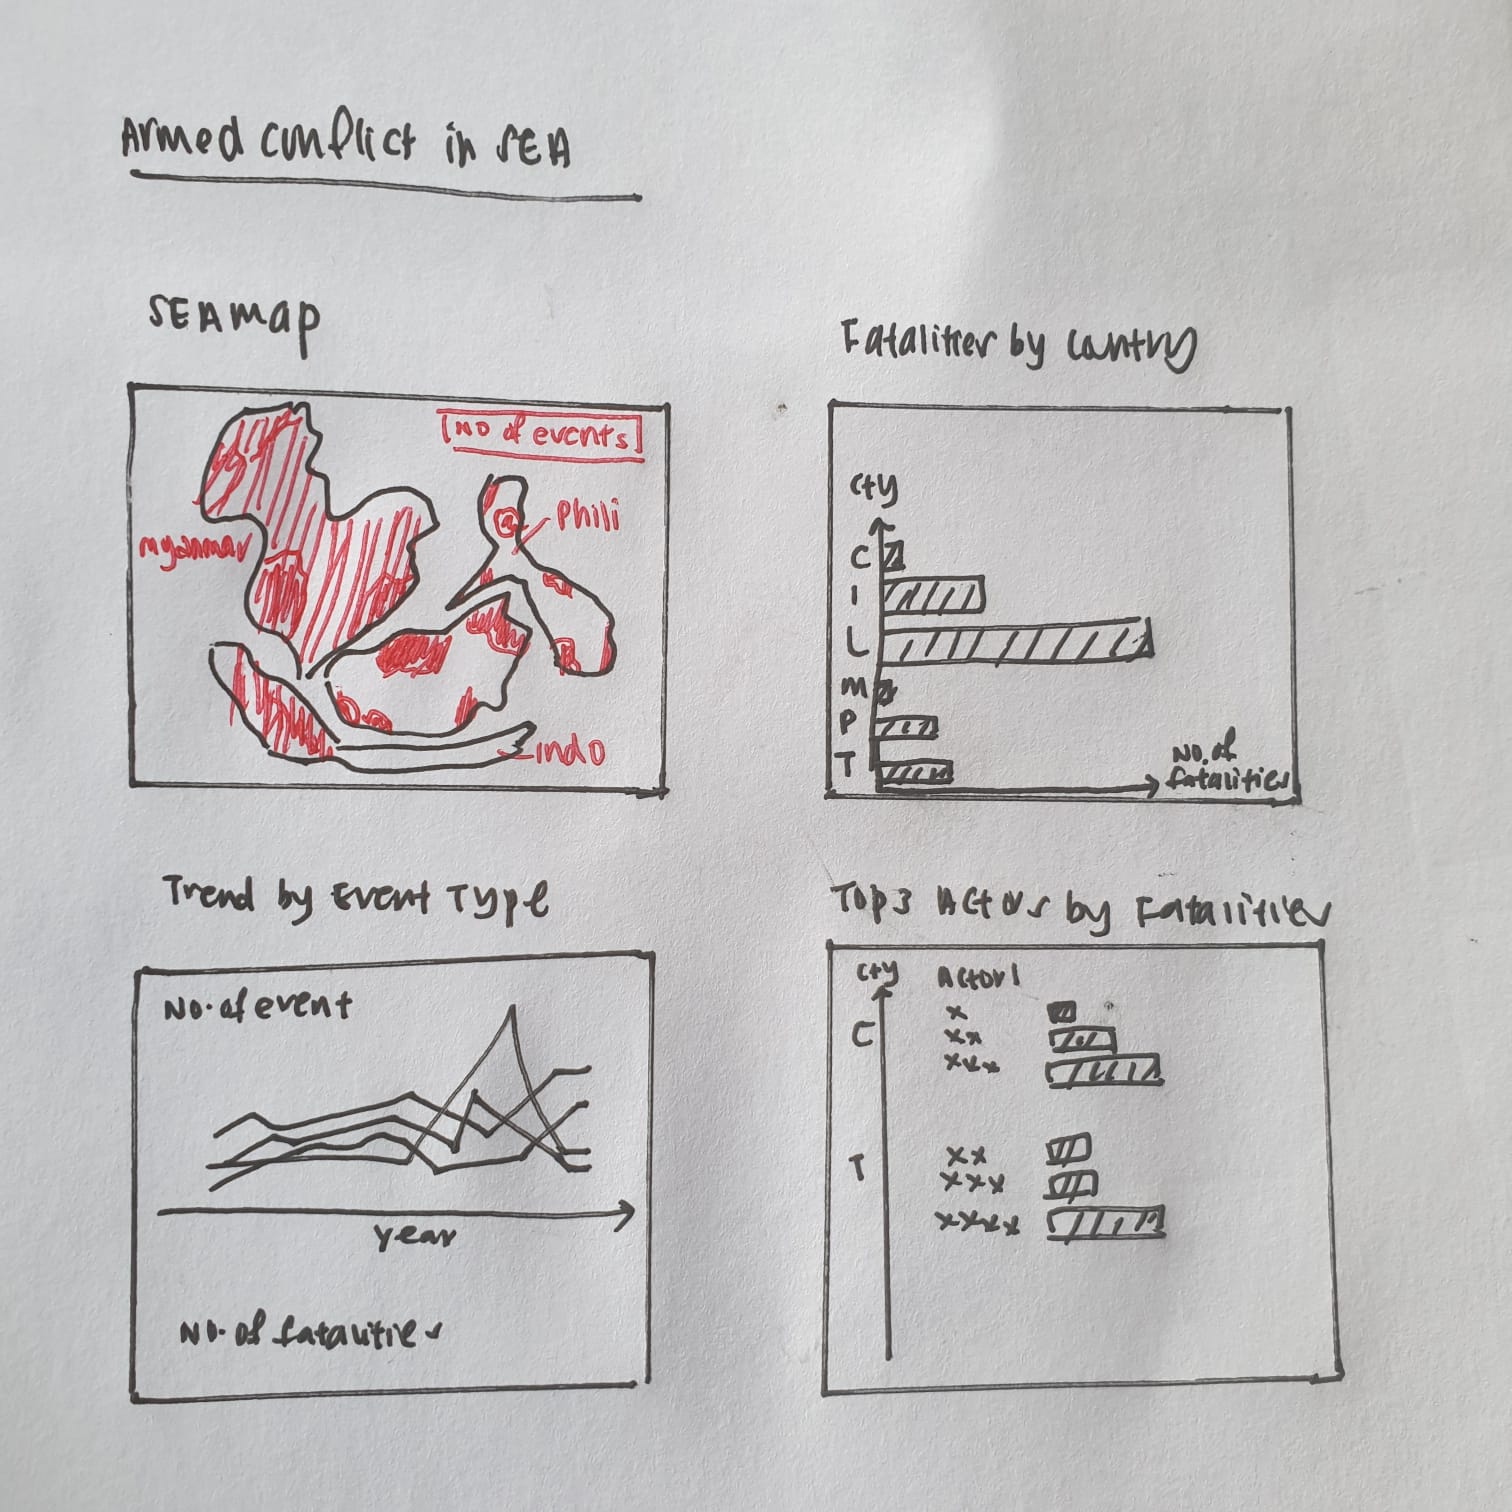 Armed conflict in SEA
SEA map
[No of events]
Phili
Myanmar
Indo
Fatalities by country
cty
C
I
L
M
P
T
No. of
fatalities
Trend by Event Type
No. of event
year
No. of fatalities
Top 3 Actors by Fatalities
cty
Actor 1
x
C
xx
xxx
T
xx
xxx
xxxx